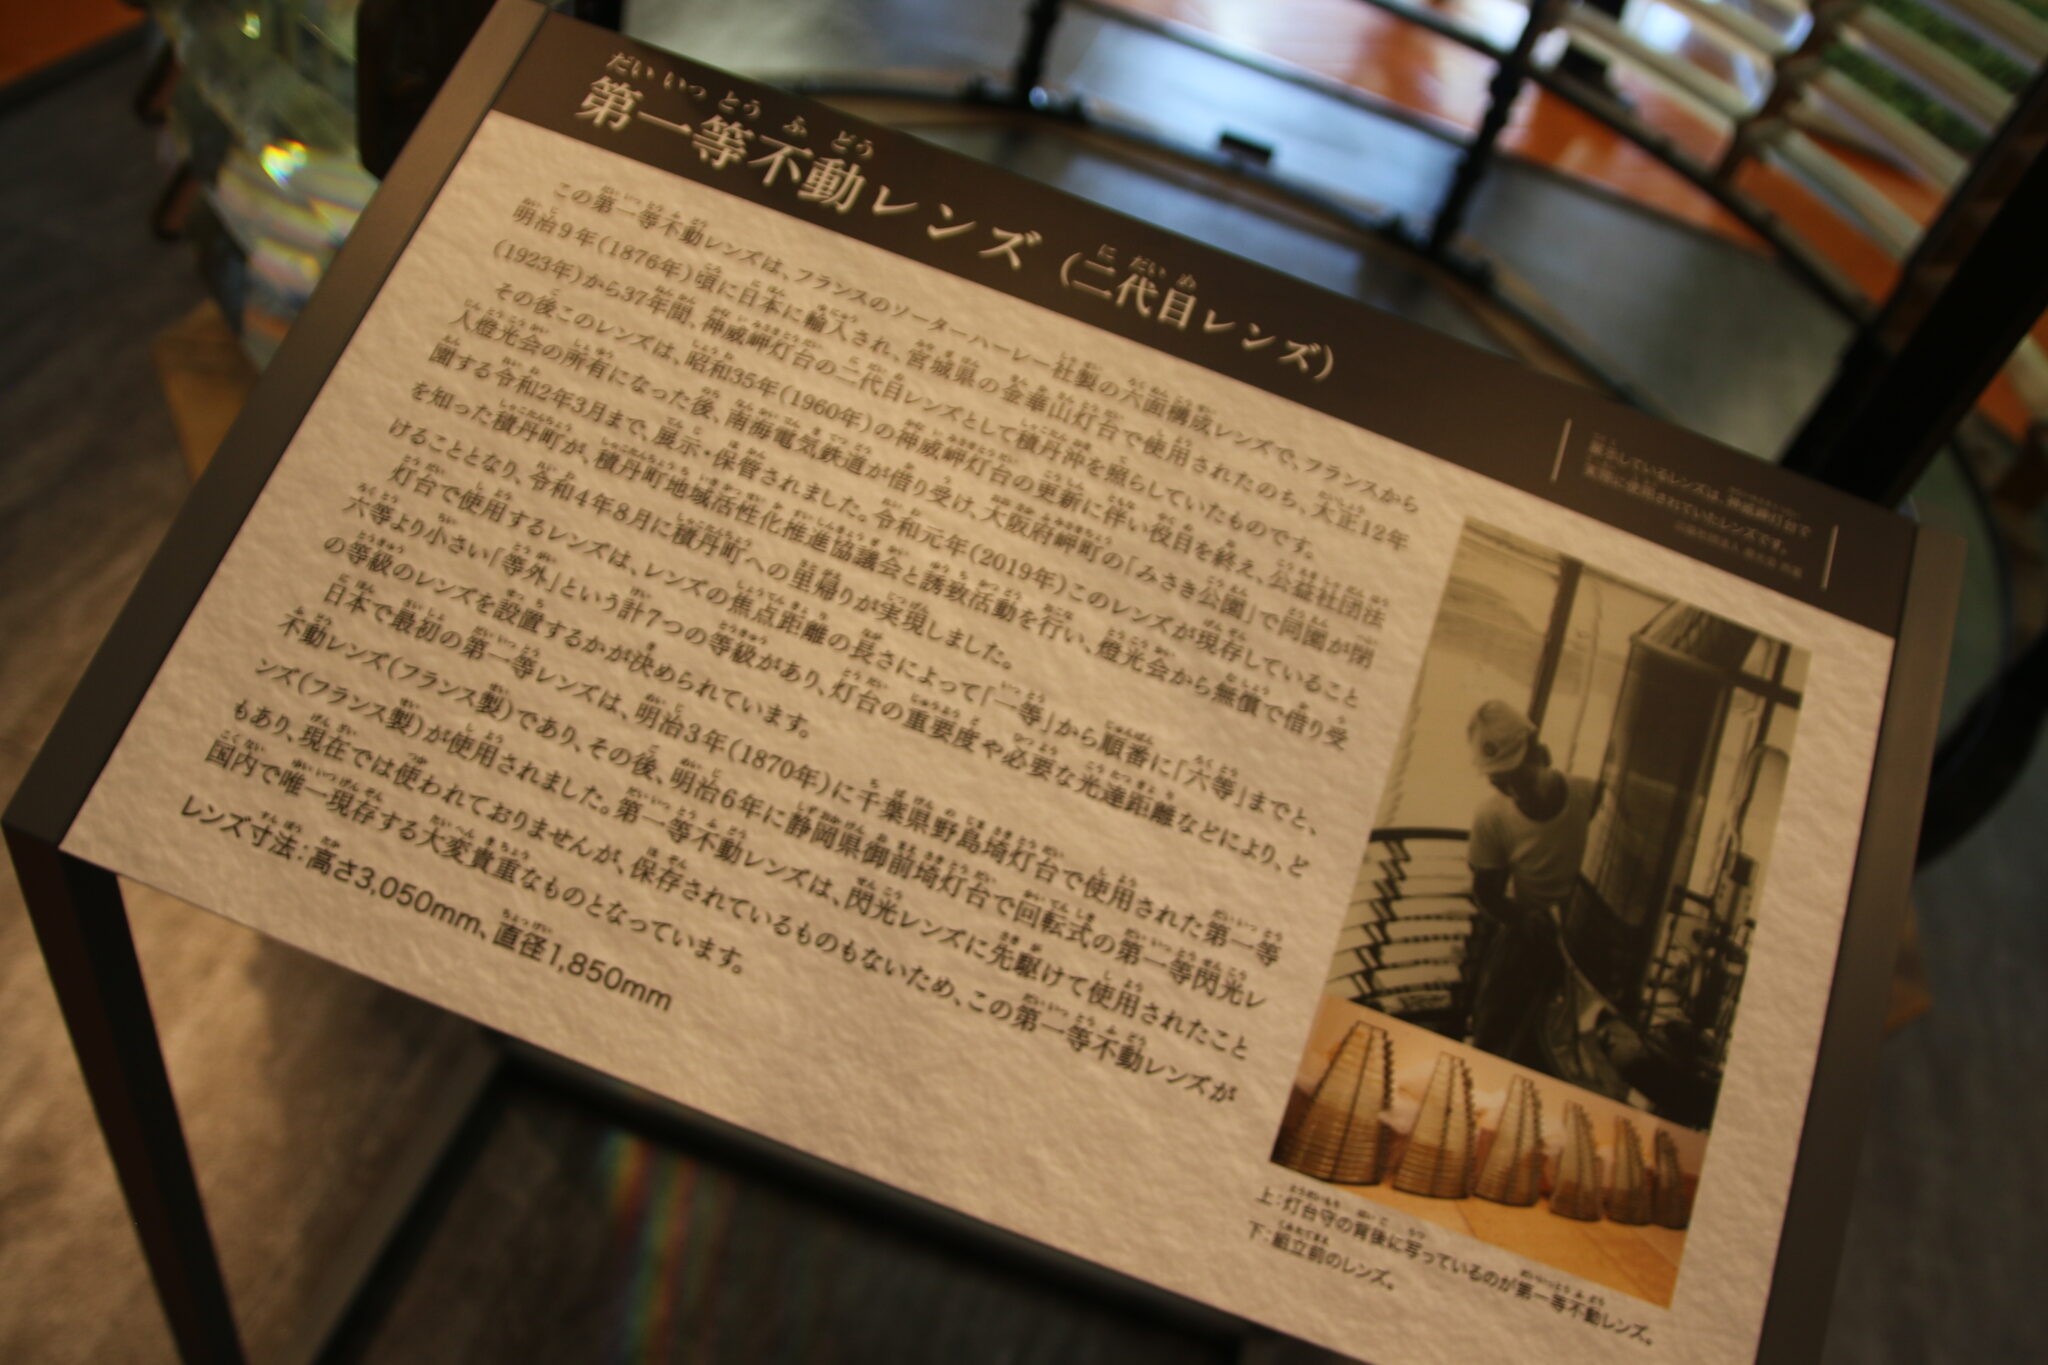 第一等不動レンズ（二代目レンズ）
展示しているレンズは、神威岬灯台で
実際に使用されていたレンズです。
この第一等不動レンズは、フランスのソーターハーレー社製の六面構成レンズで、フランスから
明治9年(1876年)頃に日本に輸入され、宮城県の金華山灯台で使用されたのち、大正12年
(1923年)から37年間、神威岬灯台の二代目レンズとして積丹沖を照らしていたものです。
その後このレンズは、昭和35年(1960年)の神威岬灯台の更新に伴い役目を終え、公益社団法
人燈光会の所有になった後、南海電気鉄道が借り受け、大阪府岬町の「みさき公園」で同園が閉
園する令和2年3月まで、展示・保管されました。令和元年(2019年)このレンズが現存していること
を知った積丹町が、積丹町地域活性化推進協議会と誘致活動を行い、燈光会から無償で借り受
けることとなり、令和4年8月に積丹町への里帰りが実現しました。
灯台で使用するレンズは、レンズの焦点距離の長さによって「一等」から順番に「六等」までと、
六等より小さい「等外」という計7つの等級があり、灯台の重要度や必要な光達距離などにより、ど
の等級のレンズを設置するかが決められています。
日本で最初の第一等レンズは、明治3年(1870年)に千葉県野島埼灯台で使用された第一等
不動レンズ(フランス製)であり、その後、明治6年に静岡県御前埼灯台で回転式の第一等閃光レ
ンズ(フランス製)が使用されました。第一等不動レンズは、閃光レンズに先駆けて使用されたこと
もあり、現在では使われておりませんが、保存されているものもないため、この第一等不動レンズが
国内で唯一現存する大変貴重なものとなっています。
レンズ寸法：高さ3,050mm、直径1,850mm
上：灯台守の背後に写っているのが第一等不動レンズ。
下：組立前のレンズ。